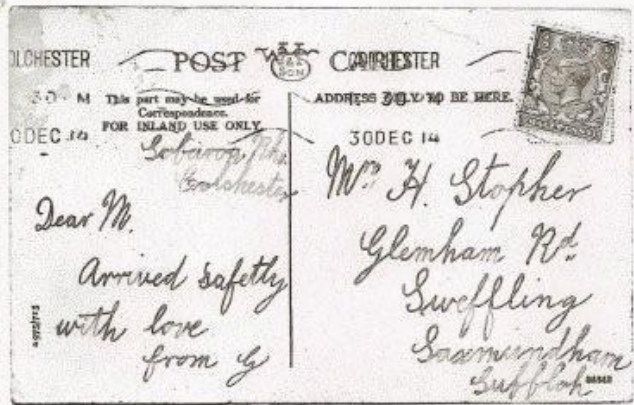 POST CARD
COLCHESTER
30 DEC 14
This part may be used for
Correspondence.
FOR INLAND USE ONLY.
ADDRESS ONLY TO BE HERE.
COLCHESTER
30 DEC 14
Colchester
Dear M.
Arrived safetly
with love
from G
Mrs H. Stopher
Glemham Rd.
Sweffling
Saxmundham
Suffolk